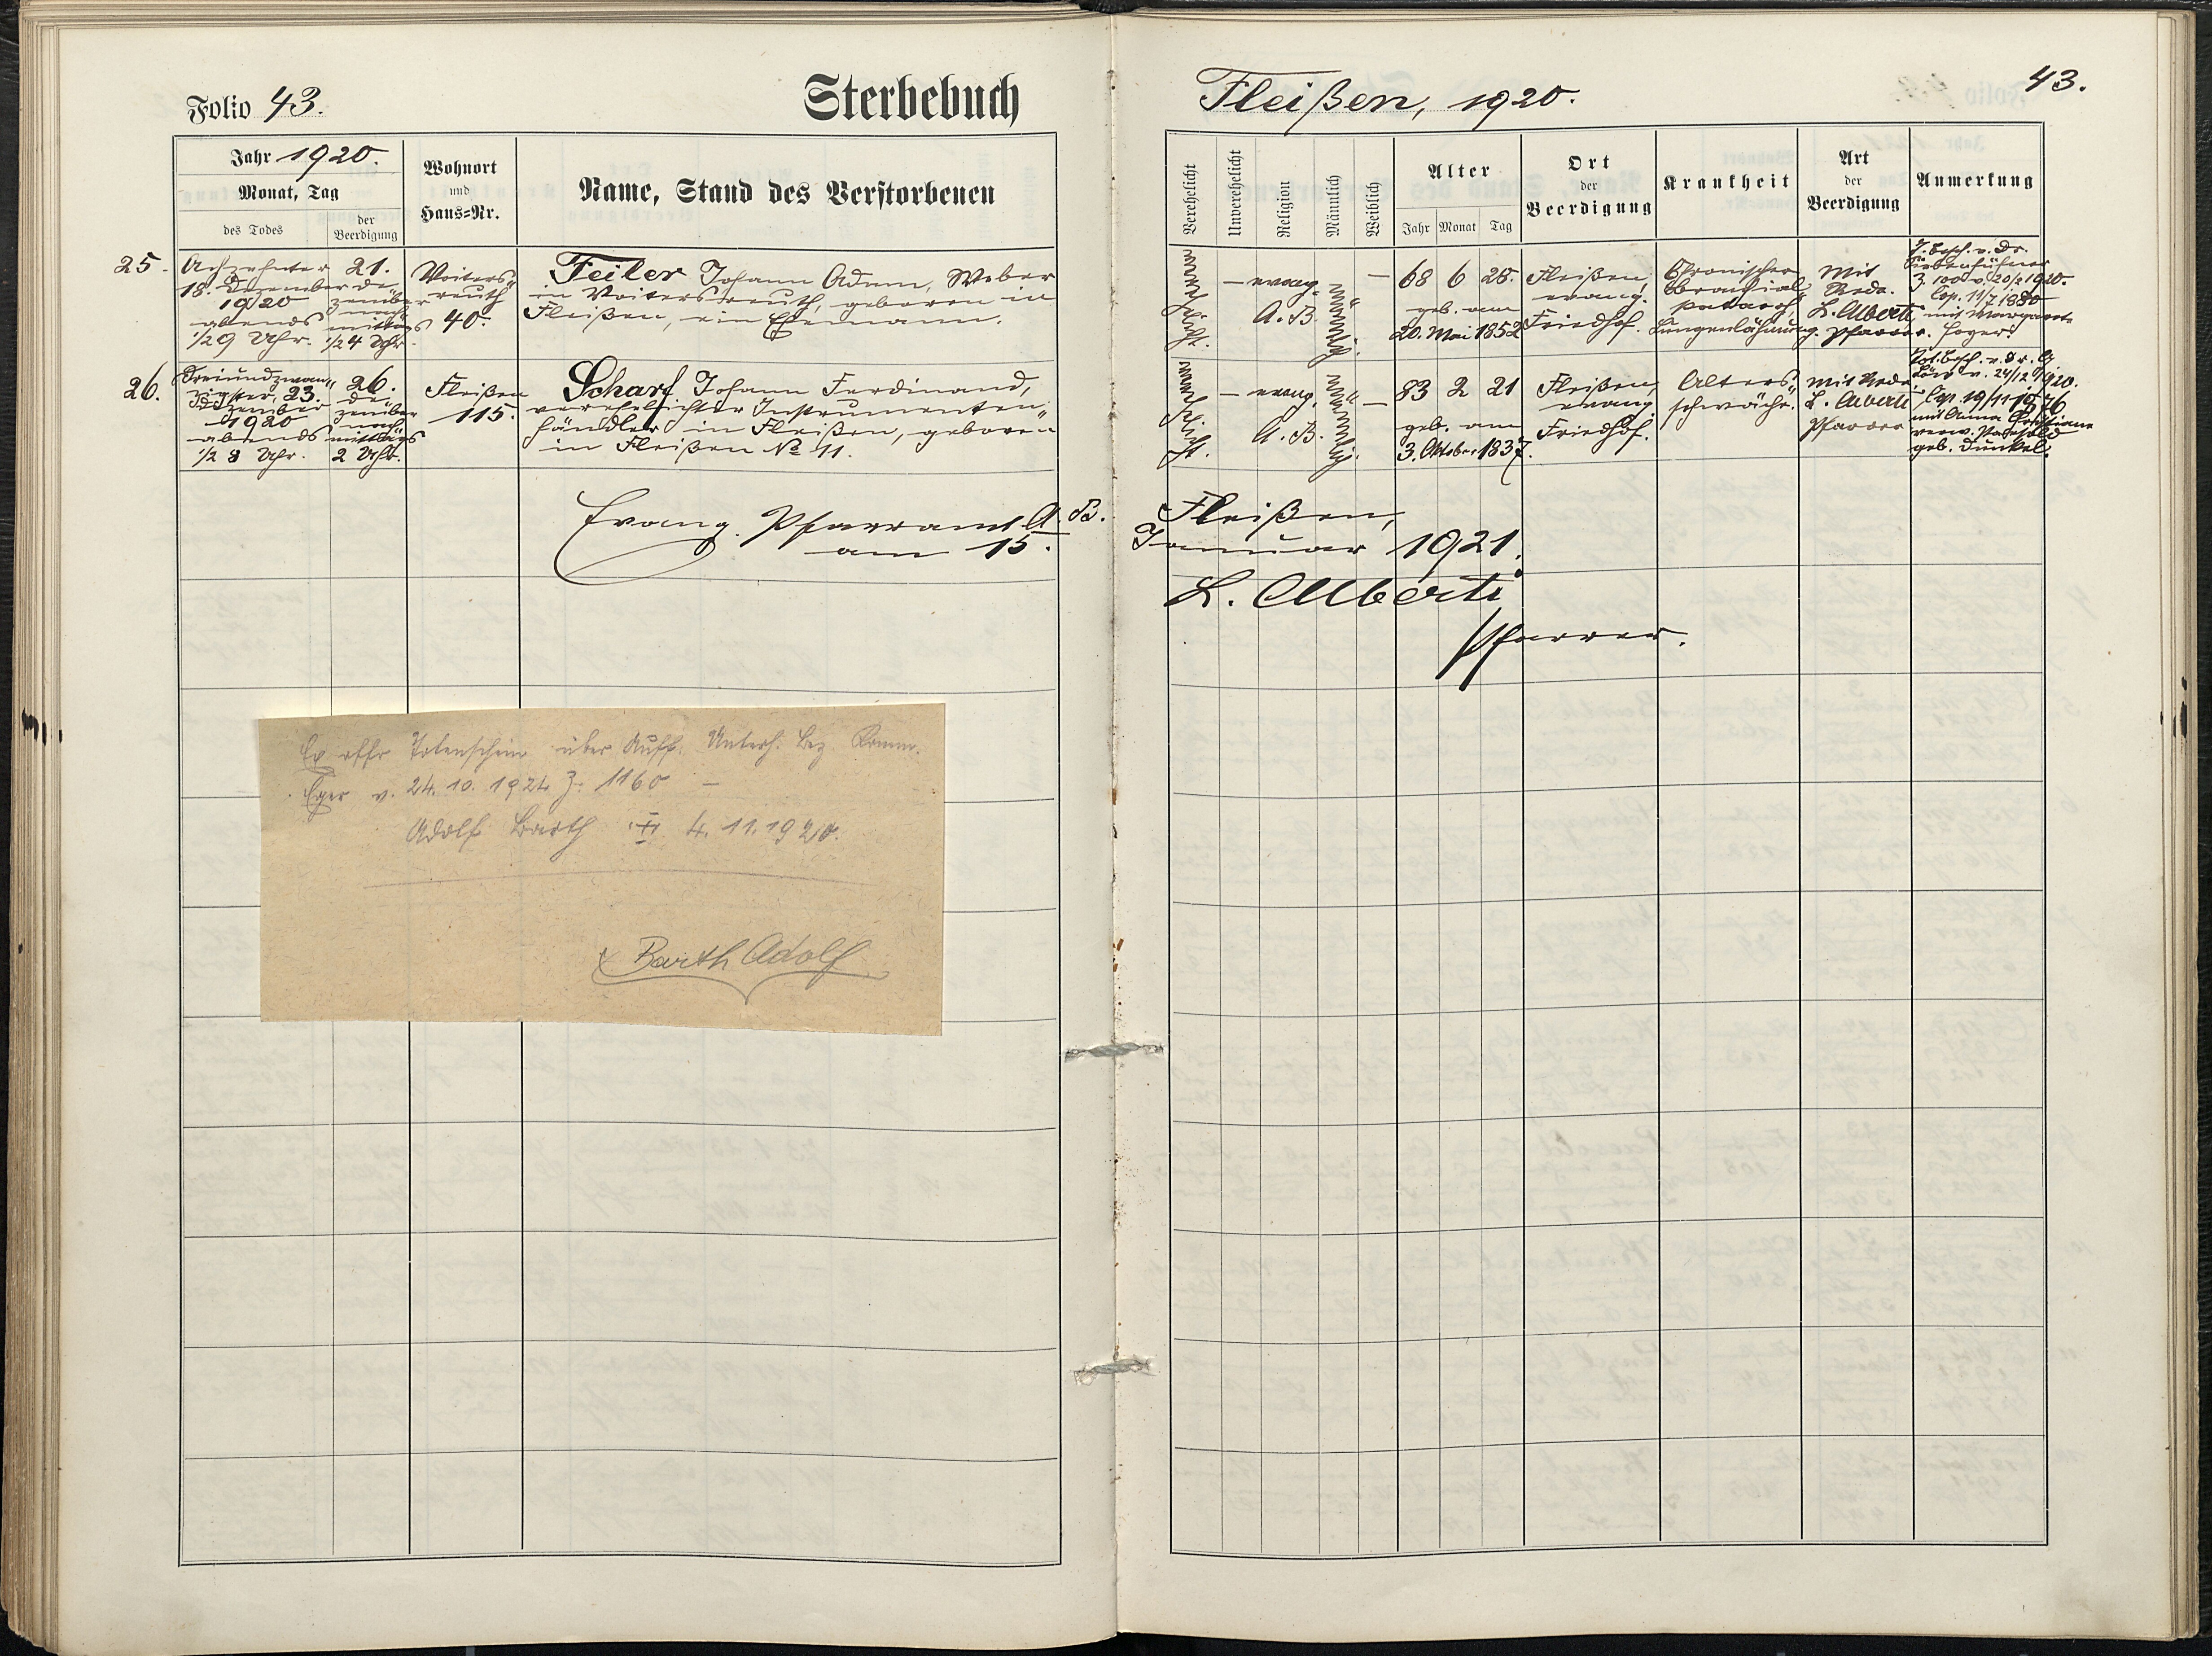 Folio 43.
Sterbebuch
Jahr 1920.
Monat, Tag
des Todes
der
Beerdigung
Wohnort
und
Haus=Nr.
Name, Stand des Verstorbenen
25.
Achzehnter
18. Dezember
1920
abends
1/29 Uhr.
21.
De-
zember
nach
mittags
1/24 Uhr.
Voiters"
reuth
40.
Feiler Johann Adam, Weber
in Voitersreuth, geboren in
Fleißen, ein Ehemann.
26.
Dreiundzwan"
zigster, 23.
Dezember
1920
abends
1/2 8 Uhr.
26.
De"
zember
nach
mittags
2 Uhr.
Fleißen
115.
Scharf Johann Ferdinand,
verehelichter Instrumenten"
händler in Fleißen, geboren
in Fleißen № 11.
Evang. Pfarramt A. B.
am 15.
Ex offo Totenschein über Auff. Unterh. Bez Komm.
Eger v. 24. 10. 1924 Z: 1160 —
Adolf Barth 4. 11. 1920.
Barth Adolf
Fleißen, 1920.
43.
Verehelicht
Unverehelicht
Religion
Männlich
Weiblich
Alter
Jahr Monat Tag
Ort
der
Beerdigung
Krankheit
Art
der
Beerdigung
Anmerkung
verehelicht.
—
evang.
A. B.
männlich.
—
68 6 28.
geb. am
20. Mai 1852
Fleißen,
evang.
Friedhof.
Chronischer
Bronchial"
katarrh,
Lungenlähmung.
Mit
Rede.
L. Alberti,
Pfarrer.
T. Besch. v. Dr.
Z. 100 v. 20/12 1920.
Cop. 11/7 1880
mit Margarete
verehelicht.
—
evang.
A. B.
männlich.
—
83 2 21
geb. am
3. Oktober 1837.
Fleißen,
evang.
Friedhof.
Alters"
schwäche.
Mit Rede.
L. Alberti
Pfarrer
Tot. Besch. v. Dr.
Löw v. 24/12 1920.
Cop. 19/11 1876
mit Anna Christiane
verw.
geb. Dunkel.
Fleißen,
Januar 1921.
L. Alberti
Pfarrer.